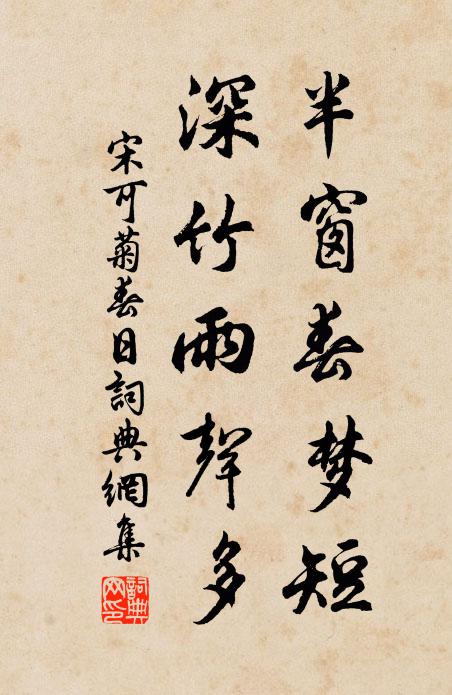 半窗春梦短
深竹雨聲多
宋可菊春日詞典網集
詞典网印